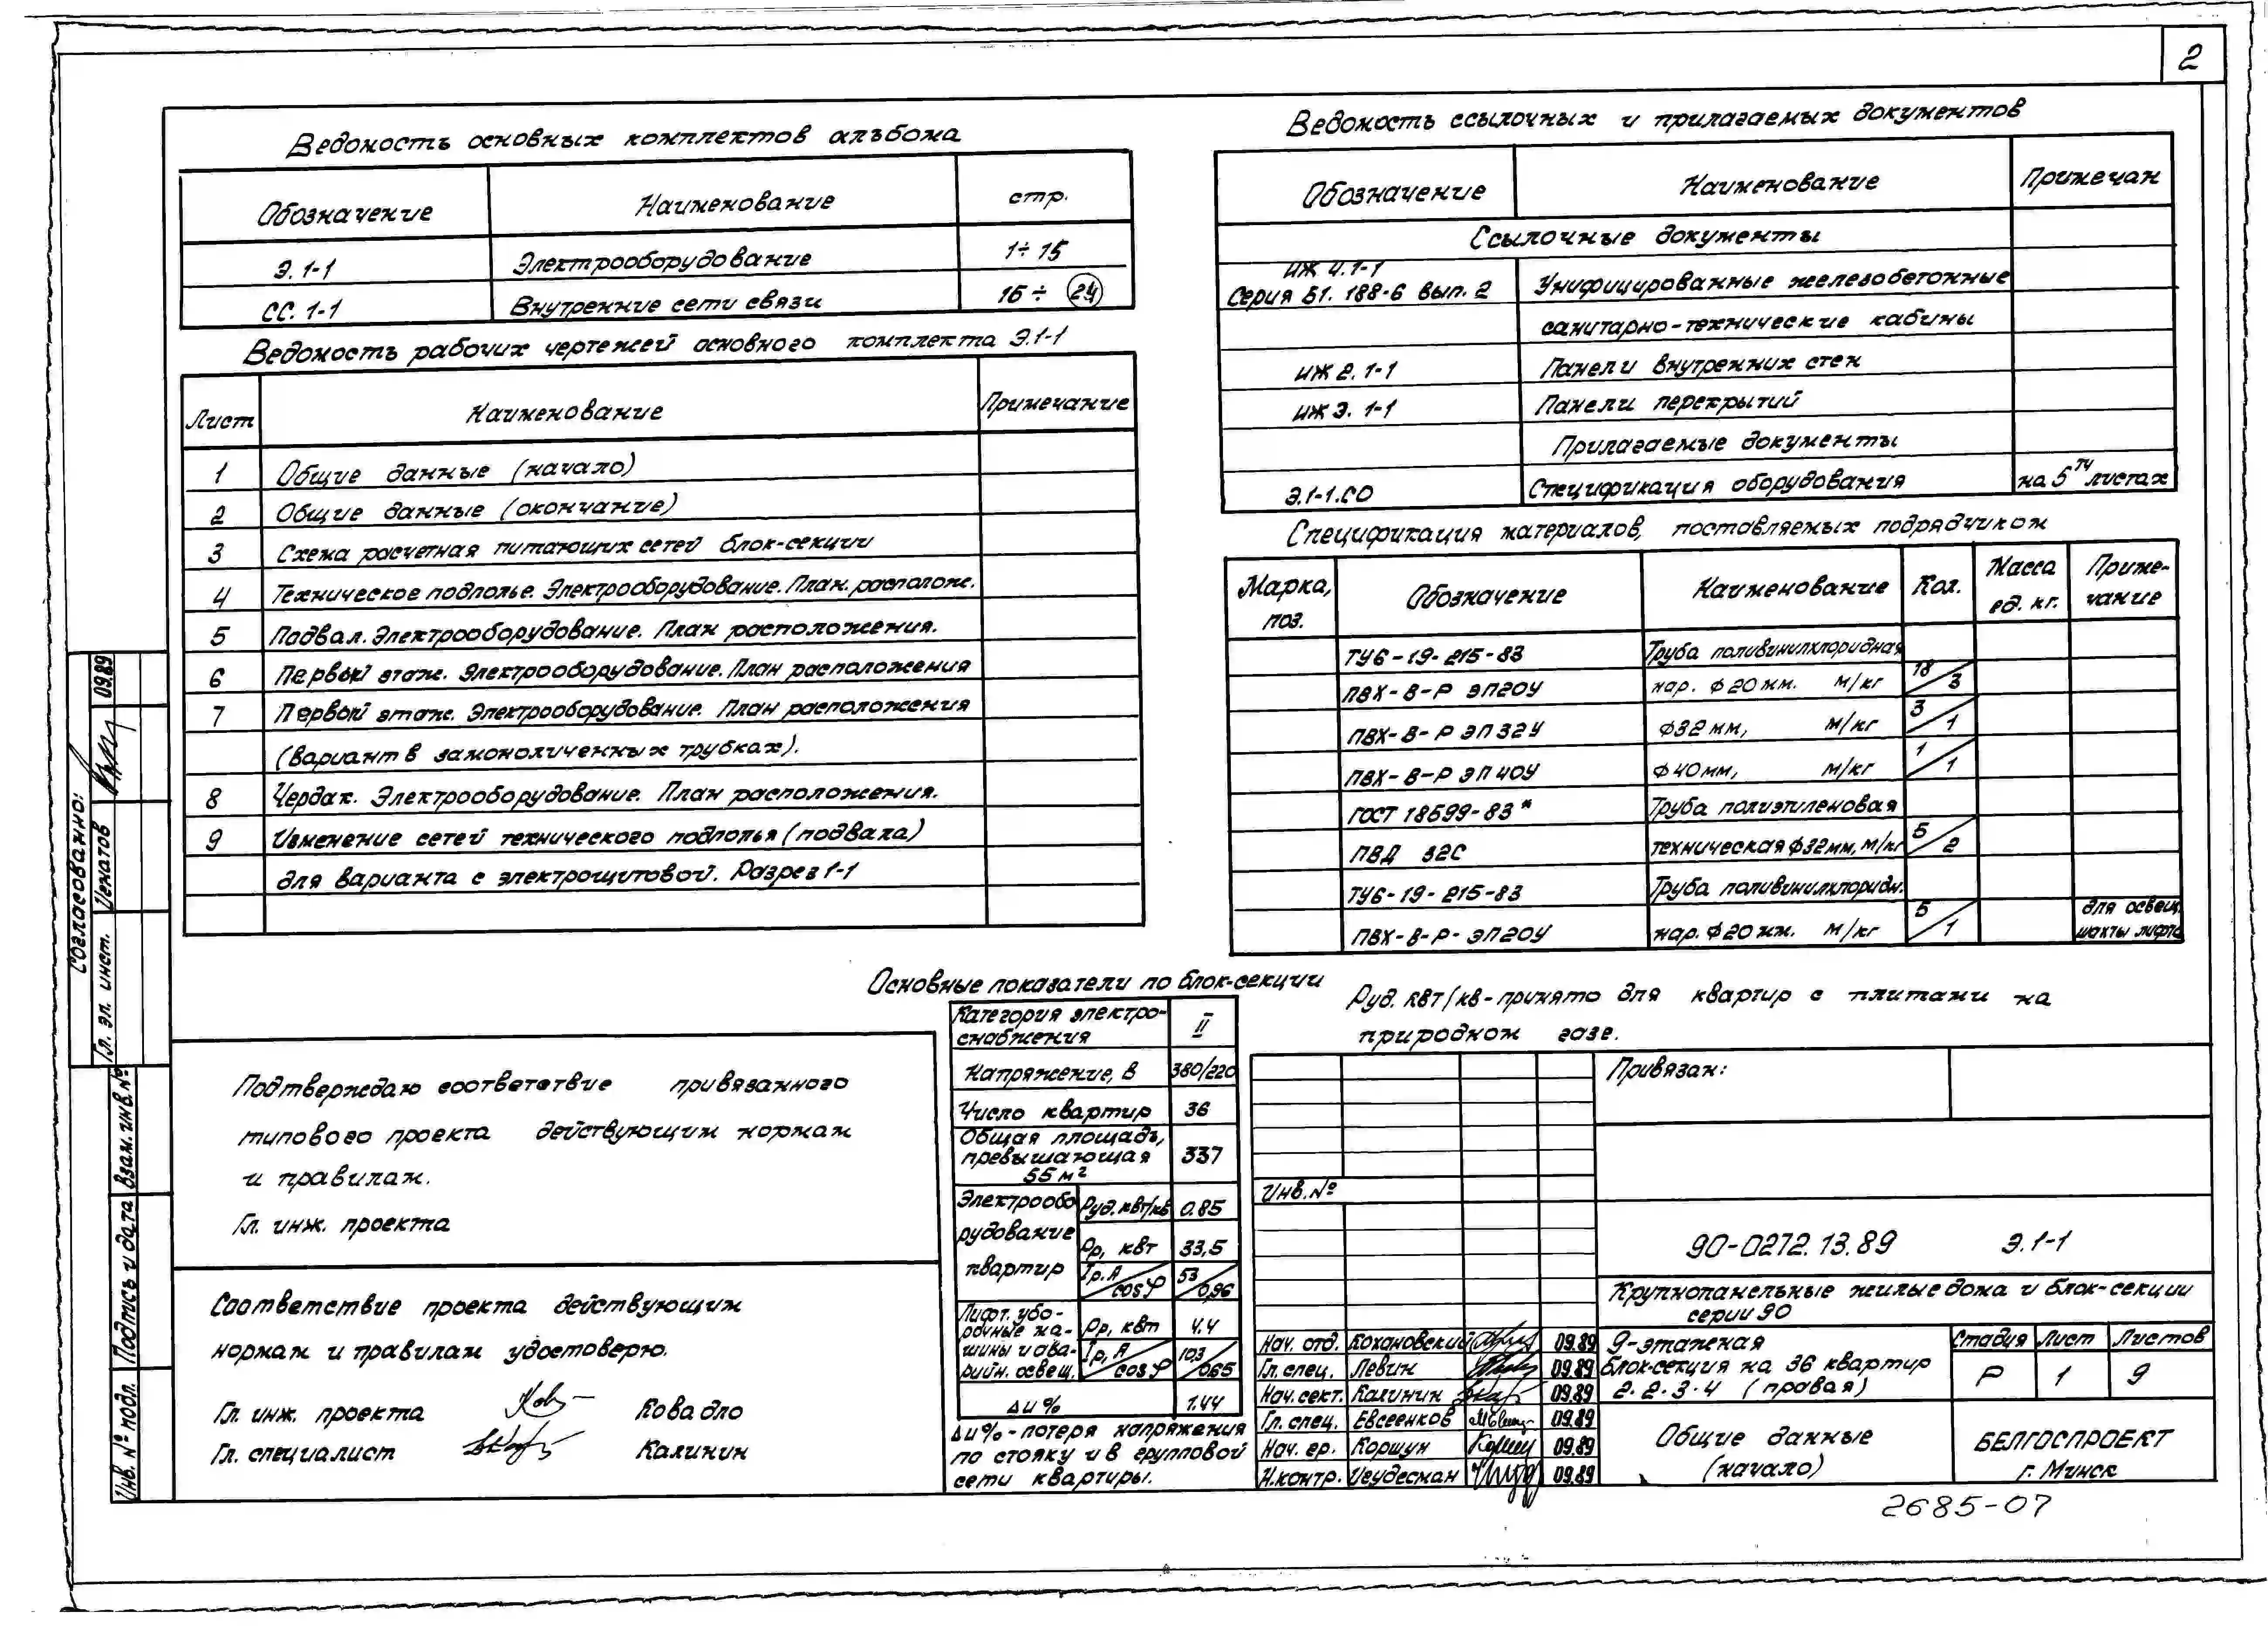 2
Ведомость основных комплектов альбома
Обозначение Наименование стр.
Э.1-1 Электрооборудование 1÷15
СС.1-1 Внутренние сети связи 16÷ 24
Ведомость рабочих чертежей основного комплекта Э.1-1
Лист Наименование Примечание
1 Общие данные (начало)
2 Общие данные (окончание)
3 Схема расчетная питающих сетей блок-секции
4 Техническое подполье. Электрооборудование. План. располож.
5 Подвал. Электрооборудование. План расположения.
6 Первый этаж. Электрооборудование. План расположения
7 Первый этаж. Электрооборудование. План расположения
(вариант в замоноличенных трубках).
8 Чердак. Электрооборудование. План расположения.
9 Изменение сетей технического подполья (подвала)
для варианта с электрощитовой. Разрез 1-1
Ведомость ссылочных и прилагаемых документов
Обозначение Наименование Примечан
Ссылочные документы
ИЖ 4.1-1
Серия Б1.188-6 вып. 2 Унифицированные железобетонные
санитарно-технические кабины
ИЖ 2.1-1 Панели внутренних стен
ИЖ 3.1-1 Панели перекрытий
Прилагаемые документы
Э.1-1.СО Спецификация оборудования на 5ти листах
Спецификация материалов, поставляемых подрядчиком
Марка, поз. Обозначение Наименование Кол. Масса ед. кг. Примечание
ТУ6-19-215-83 Труба поливинилхлоридная
ПВХ-В-Р ЭП20У нар. ф20мм. м/кг 18/3
ПВХ-В-Р ЭП32У ф32мм, м/кг 3/1
ПВХ-В-Р ЭП40У ф40мм, м/кг 1/1
ГОСТ 18599-83* Труба полиэтиленовая
ПВД 32С техническая ф32мм, м/кг 5/2
ТУ6-19-215-83 Труба поливинилхлоридн.
ПВХ-В-Р-ЭП20У нар. ф20мм. м/кг 5/1 для освещ. шахты лифта
Основные показатели по блок-секции
Категория электроснабжения II
Напряжение, В 380/220
Число квартир 36
Общая площадь, превышающая 55м² 337
Электрооборудование квартир Руд. квт/кв 0.85
Рр, квт 33,5
Iр. А/cosφ 53/0,96
Лифт. уборочные машины и аварийн. освещ. Рр, квт 4.4
Iр, А/cosφ 10,3/0,65
Δu% 1.44
Δu% - потеря напряжения
по стояку и в групповой
сети квартиры.
Руд. квт/кв - принято для квартир с плитами на
природном газе.
Подтверждаю соответствие привязанного
типового проекта действующим нормам
и правилам.
Гл. инж. проекта
Соответствие проекта действующим
нормам и правилам удостоверю.
Гл. инж. проекта Ковадло
Гл. специалист Калинин
Привязан:
Инв.№
90-0272.13.89 Э.1-1
Крупнопанельные жилые дома и блок-секции
серии 90
Нач. отд. Кохановский 09.89
Гл. спец. Левин 09.89
Нач. сект. Калинин 09.89
Гл. спец. Евсеенков 09.89
Нач. гр. Коршун 09.89
Н.контр. Иеудесман 09.89
9-этажная
блок-секция на 36 квартир
2.2.3.4 (правая)
Стадия Лист Листов
Р 1 9
Общие данные
(начало)
БЕЛГОСПРОЕКТ
г. Минск
2685-07
Согласовано:
Гл. эл. инст. 09.89
Взам. инв.№
Подпись и дата
Инв. № подл.